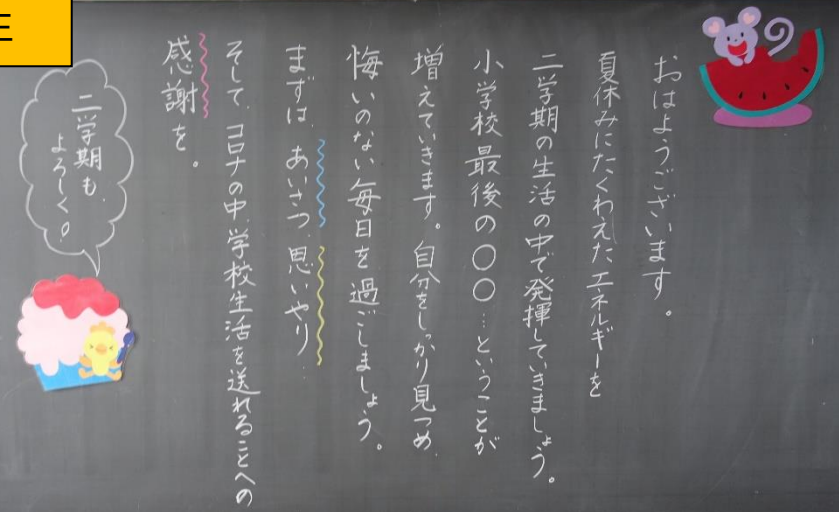 おはようございます。
夏休みにたくわえたエネルギーを
二学期の生活の中で発揮していきましょう。
小学校最後の〇〇…ということが
増えていきます。自分をしっかり見つめ、
悔いのない毎日を過ごしましょう。
まずは、あいさつ、思いやり、
そして、コロナの中、学校生活を送れることへの
感謝を。
二学期も、
よろしく!